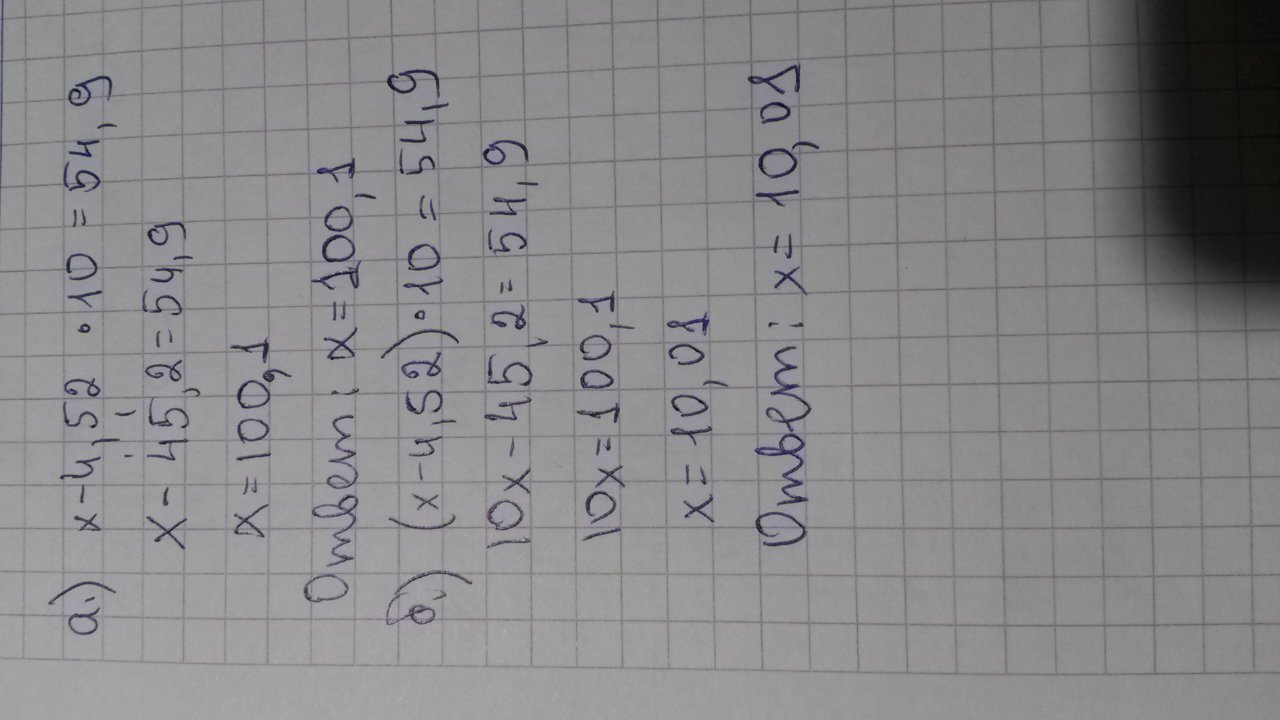 а.) x-4,52 · 10 = 54,9
x - 45,2 = 54,9
x = 100,1
Ответ: x = 100,1
б.) (x-4,52) · 10 = 54,9
10x - 45,2 = 54,9
10x = 100,1
x = 10,01
Ответ: x = 10,01